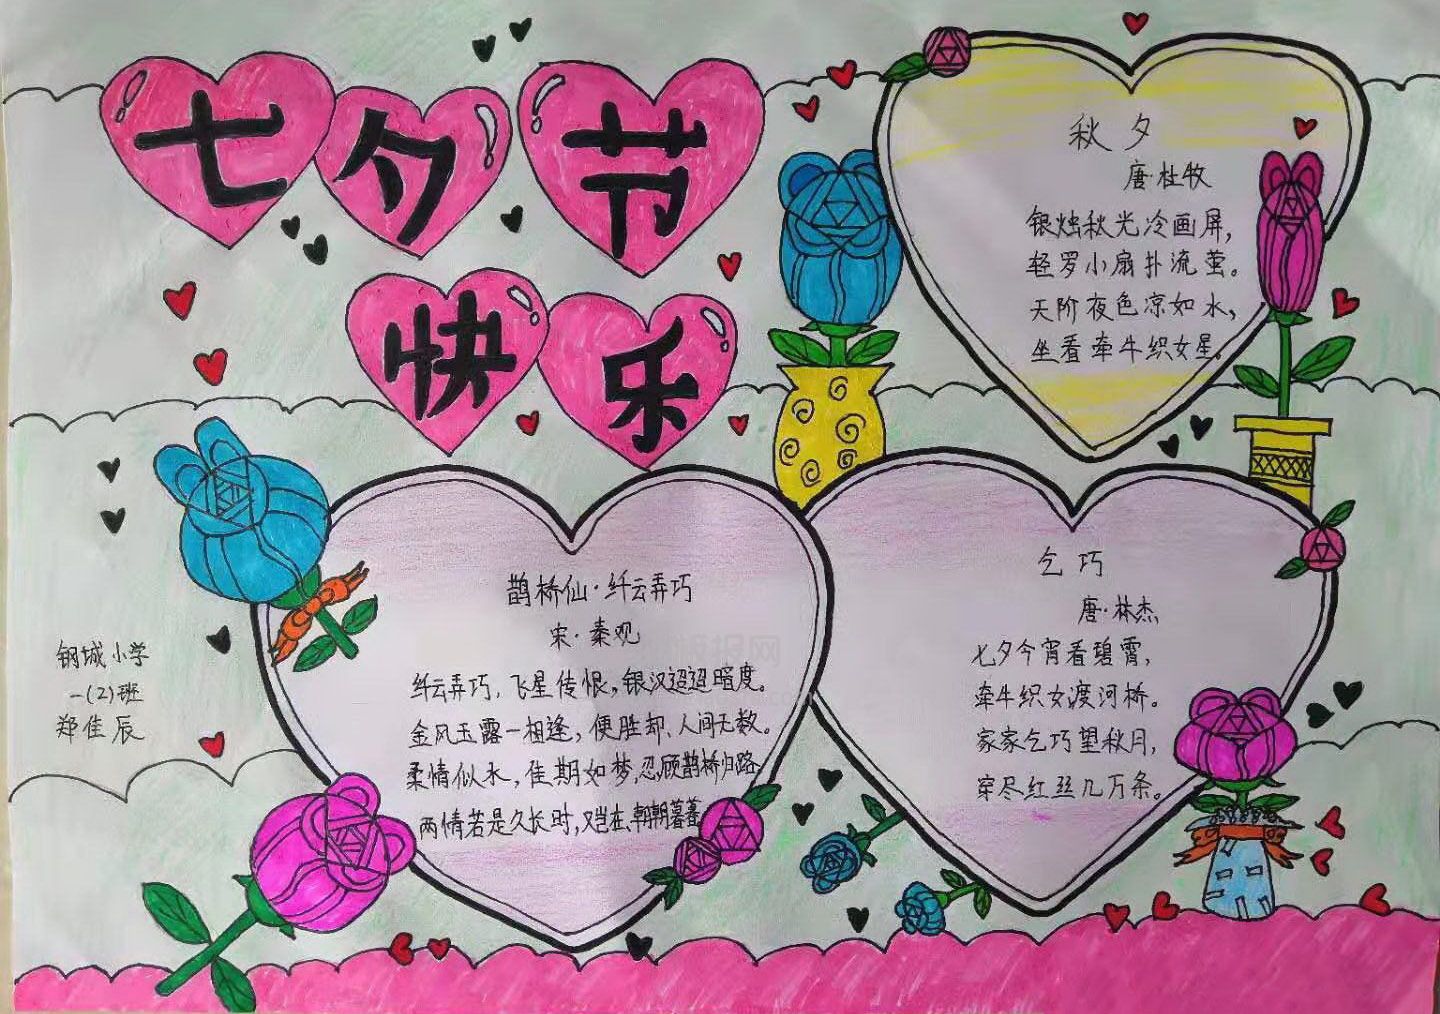 七夕节
快乐
秋夕
唐·杜牧
银烛秋光冷画屏，
轻罗小扇扑流萤。
天阶夜色凉如水，
坐看牵牛织女星。
鹊桥仙·纤云弄巧
宋·秦观
纤云弄巧、飞星传恨，银汉迢迢暗度。
金风玉露一相逢，便胜却、人间无数。
柔情似水，佳期如梦，忍顾鹊桥归路
两情若是久长时，又岂在、朝朝暮暮
乞巧
唐·林杰
七夕今宵看碧霄，
牵牛织女渡河桥。
家家乞巧望秋月，
穿尽红丝几万条。
钢城小学
一(2)班
郑佳辰